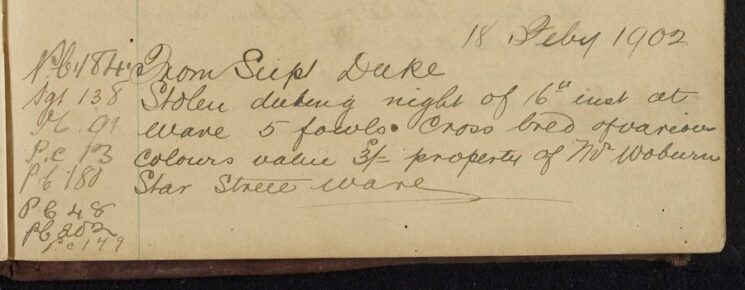 18 Feby 1902
P.C 184 From Supt Duke
Sgt 138 Stolen during night of 16th inst at
91 Ware 5 fowls. Cross bred of various
P.C 13 colours value 3/- property of Mr Woburn
P.C 180 Star Street Ware
P.C 48
P.C 202
P.C 149